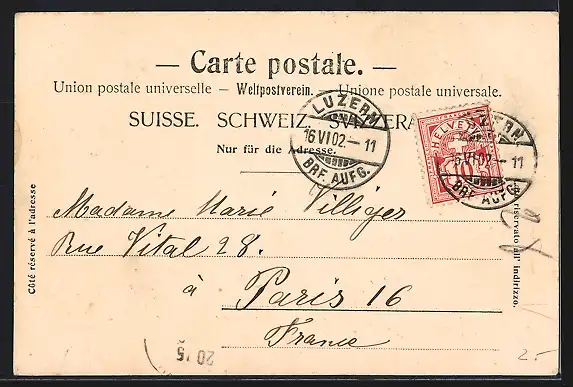 — Carte postale. —
Union postale universelle – Weltpostverein. – Unione postale universale.
SUISSE. SCHWEIZ. SVIZZERA.
Nur für die Adresse.
LUZERN
16 VI 02 – 11
BRF. AUFG.
HELVETIA
10
LUZERN
16 VI 02 – 11
BRF. AUFG.
Côté réservé à l'adresse
Madame Marie Villiger
Rue Vital 28.
à Paris 16
France
riservato all' indirizzo.
20 5
2.-